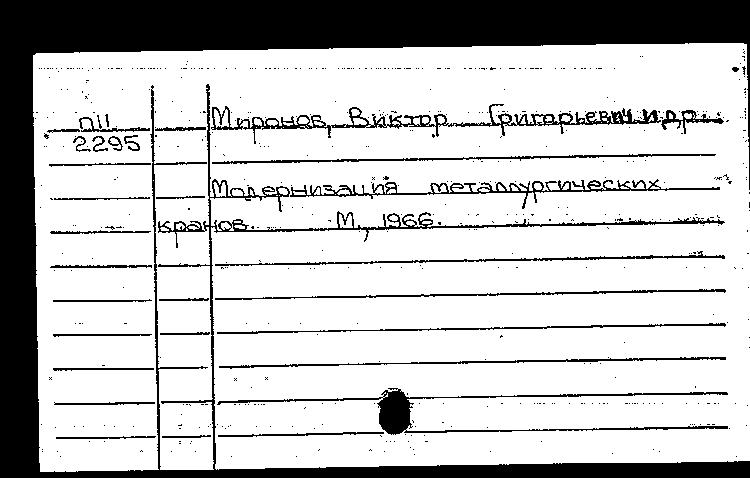 П11 Миронов, Виктор Григорьевич и др.
2295
Модернизация металлургических
кранов. М., 1966.